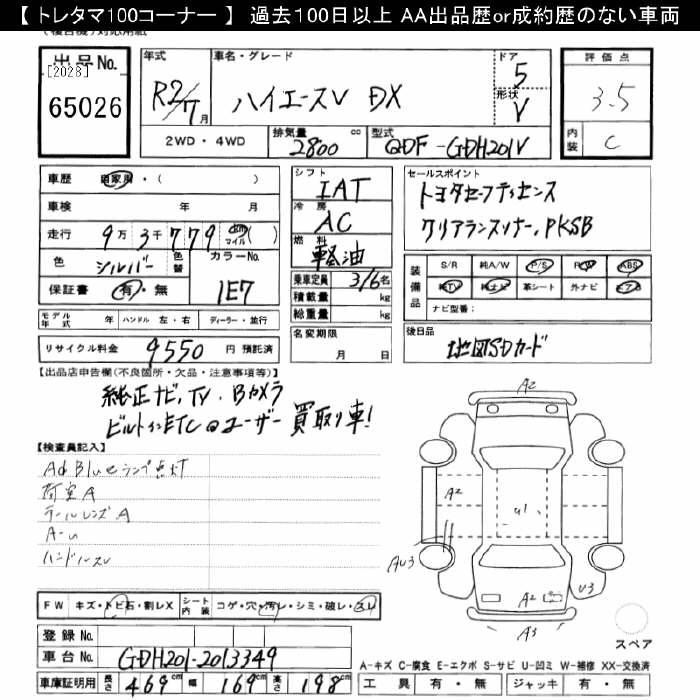 【 トレタマ100コーナー 】 過去100日以上 AA出品歴or成約歴のない車両
[2028]
出品No.
65026
年式
R2/7月
車名・グレード
ハイエースV DX
ドア
5
形状
V
2WD・4WD
排気量
2800 cc
型式
QDF-GDH201V
評価点
3.5
内装
C
車歴 自家用・( )
車検 年 月
走行 9万3千779 km マイル ( )
色 シルバー 色替
カラーNo.
1E7
保証書 有・無
モデル年式 年 ハンドル 左・右 ディーラー・並行
リサイクル料金 9550 円 預託済
シフト
IAT
冷房
AC
燃料
軽油
乗車定員 3/6名
積載量 kg
総重量 kg
名変期限
月 日
セールスポイント
トヨタセーフティセンス
クリアランスソナー,PKSB
装備品
S/R 純A/W P/S P/W ABS
純TV 純ナビ 革シート 外ナビ エアB
ナビ型番:
後日品
地図SDカード
【出品店申告欄(不良箇所・欠品・注意事項等)】
純正ナビ,TV.Bカメラ
ビルトインETC@ユーザー買取り車!
【検査員記入】
AdBlueランプ点灯
荷室A
テールレンズA
A-u
ハンドルスレ
A2
A2
U1
AU3
A2
U3
A3
スペア
FW キズ・トビ石・割レX シート内装 コゲ・穴・汚レ・シミ・破レ・スレ
登録No.
車台No. GDH201-2013349
車庫証明用 長さ 469cm 幅 169cm 高さ 198cm
A-キズ C-腐食 E-エクボ S-サビ U-凹ミ W-補修 XX-交換済
工具 有・無 ジャッキ 有・無